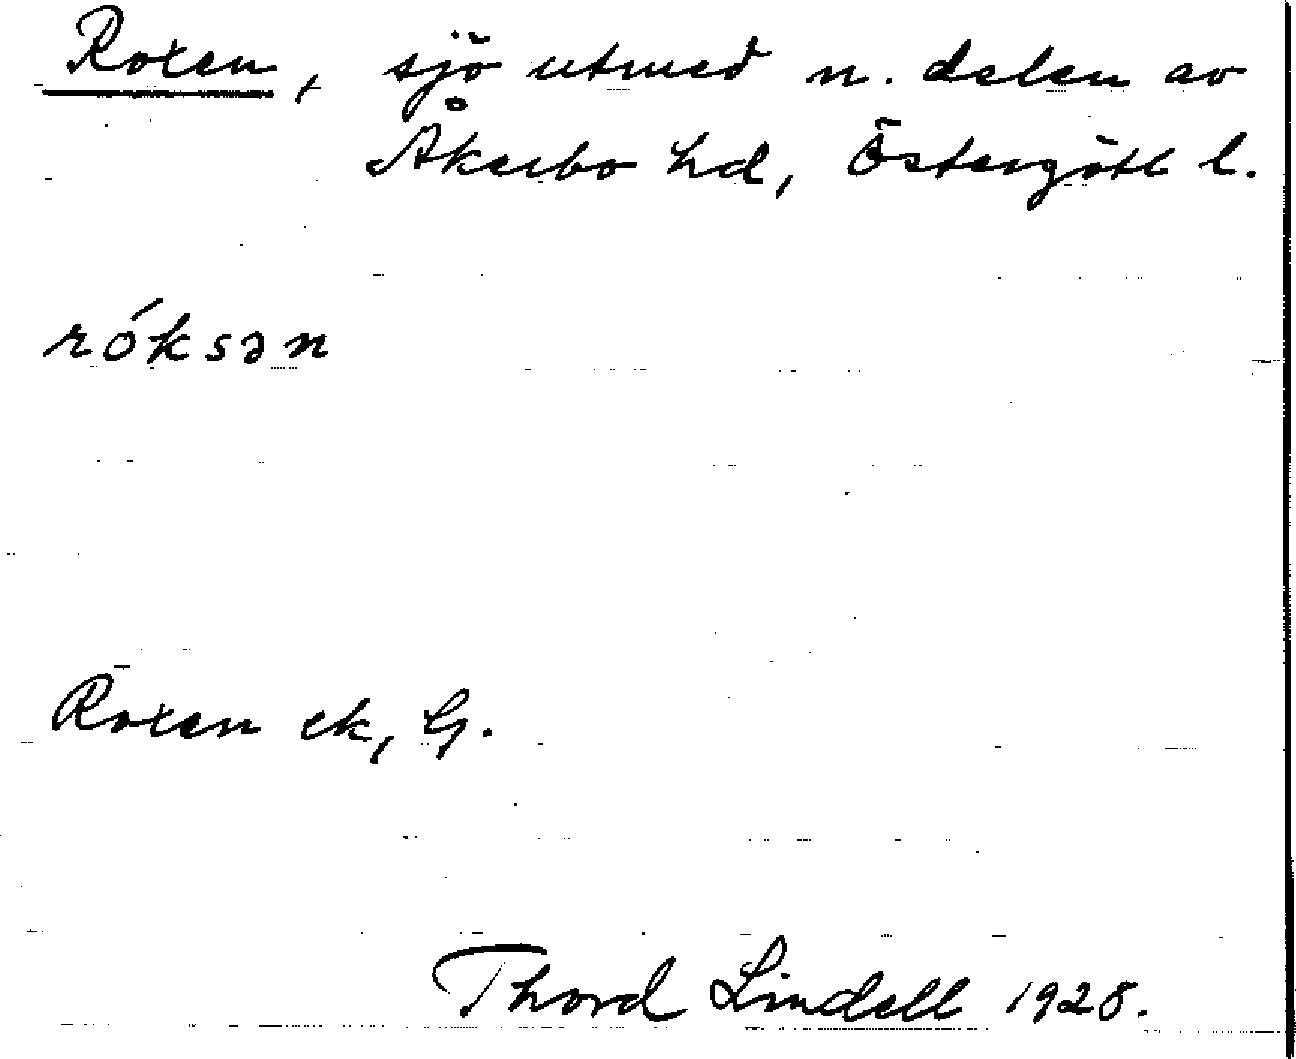 Roxen, sjö utmed n. delen av
Åkerbo hd, Östergötl l.
róksən
Roxen ek, G.
Thord Lindell 1928.